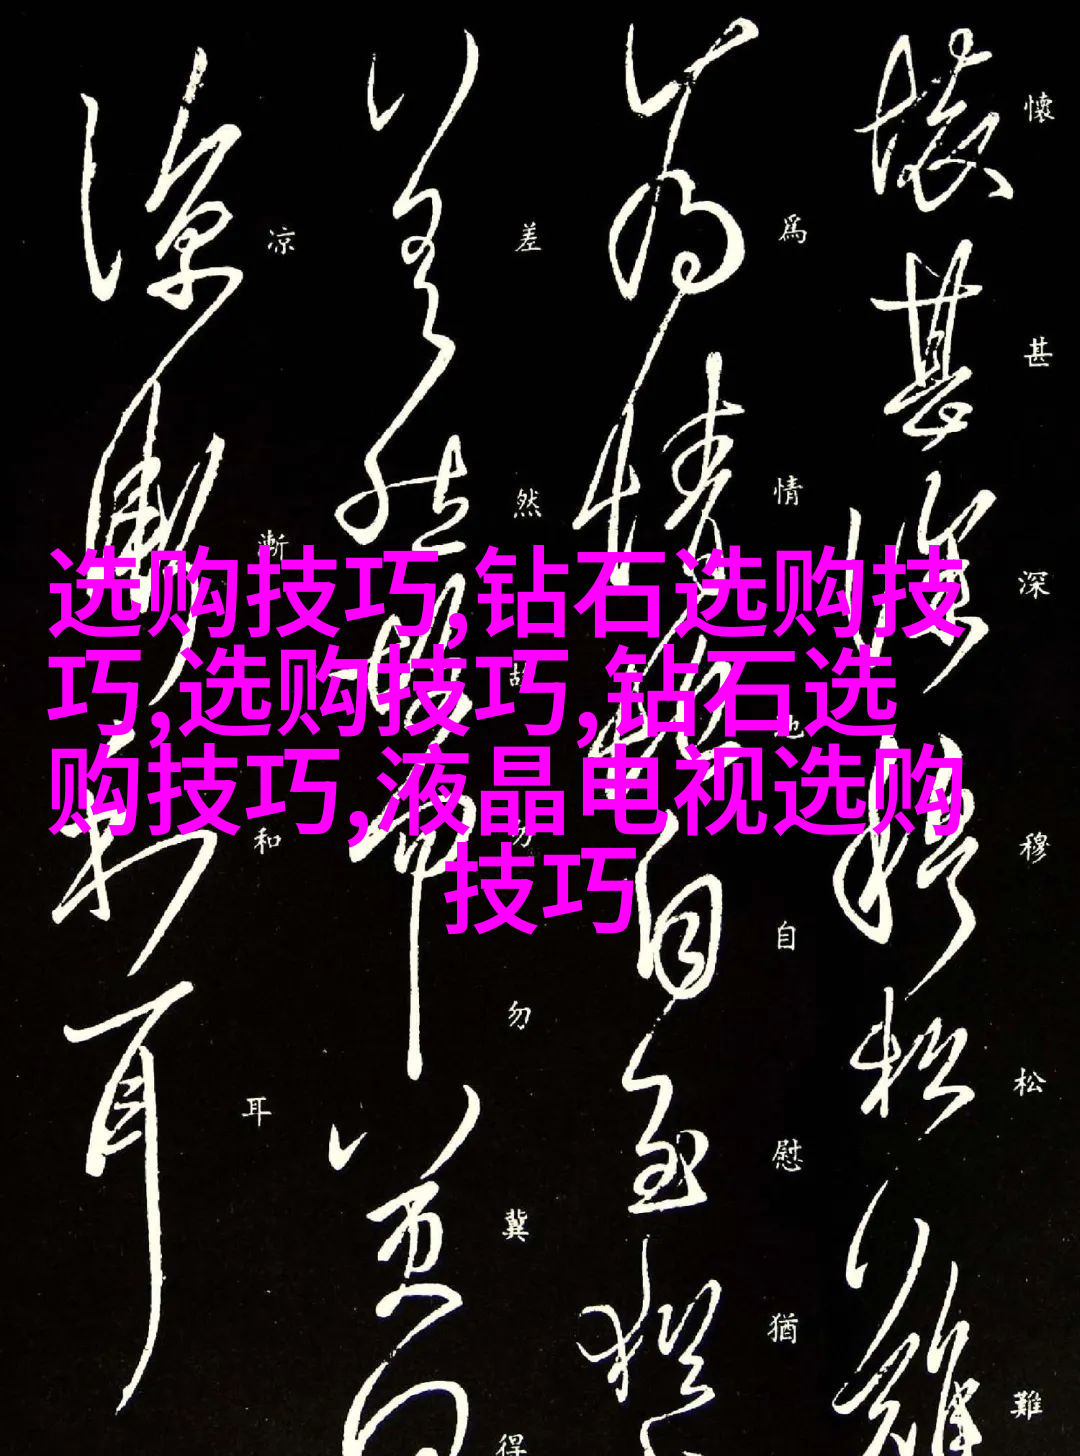 懷甚深穆松難
爲情地自慰猶
差然故勿勿冀得
凉漸和耳
选购技巧,钻石选购技
巧,选购技巧,钻石选
购技巧,液晶电视选购
技巧